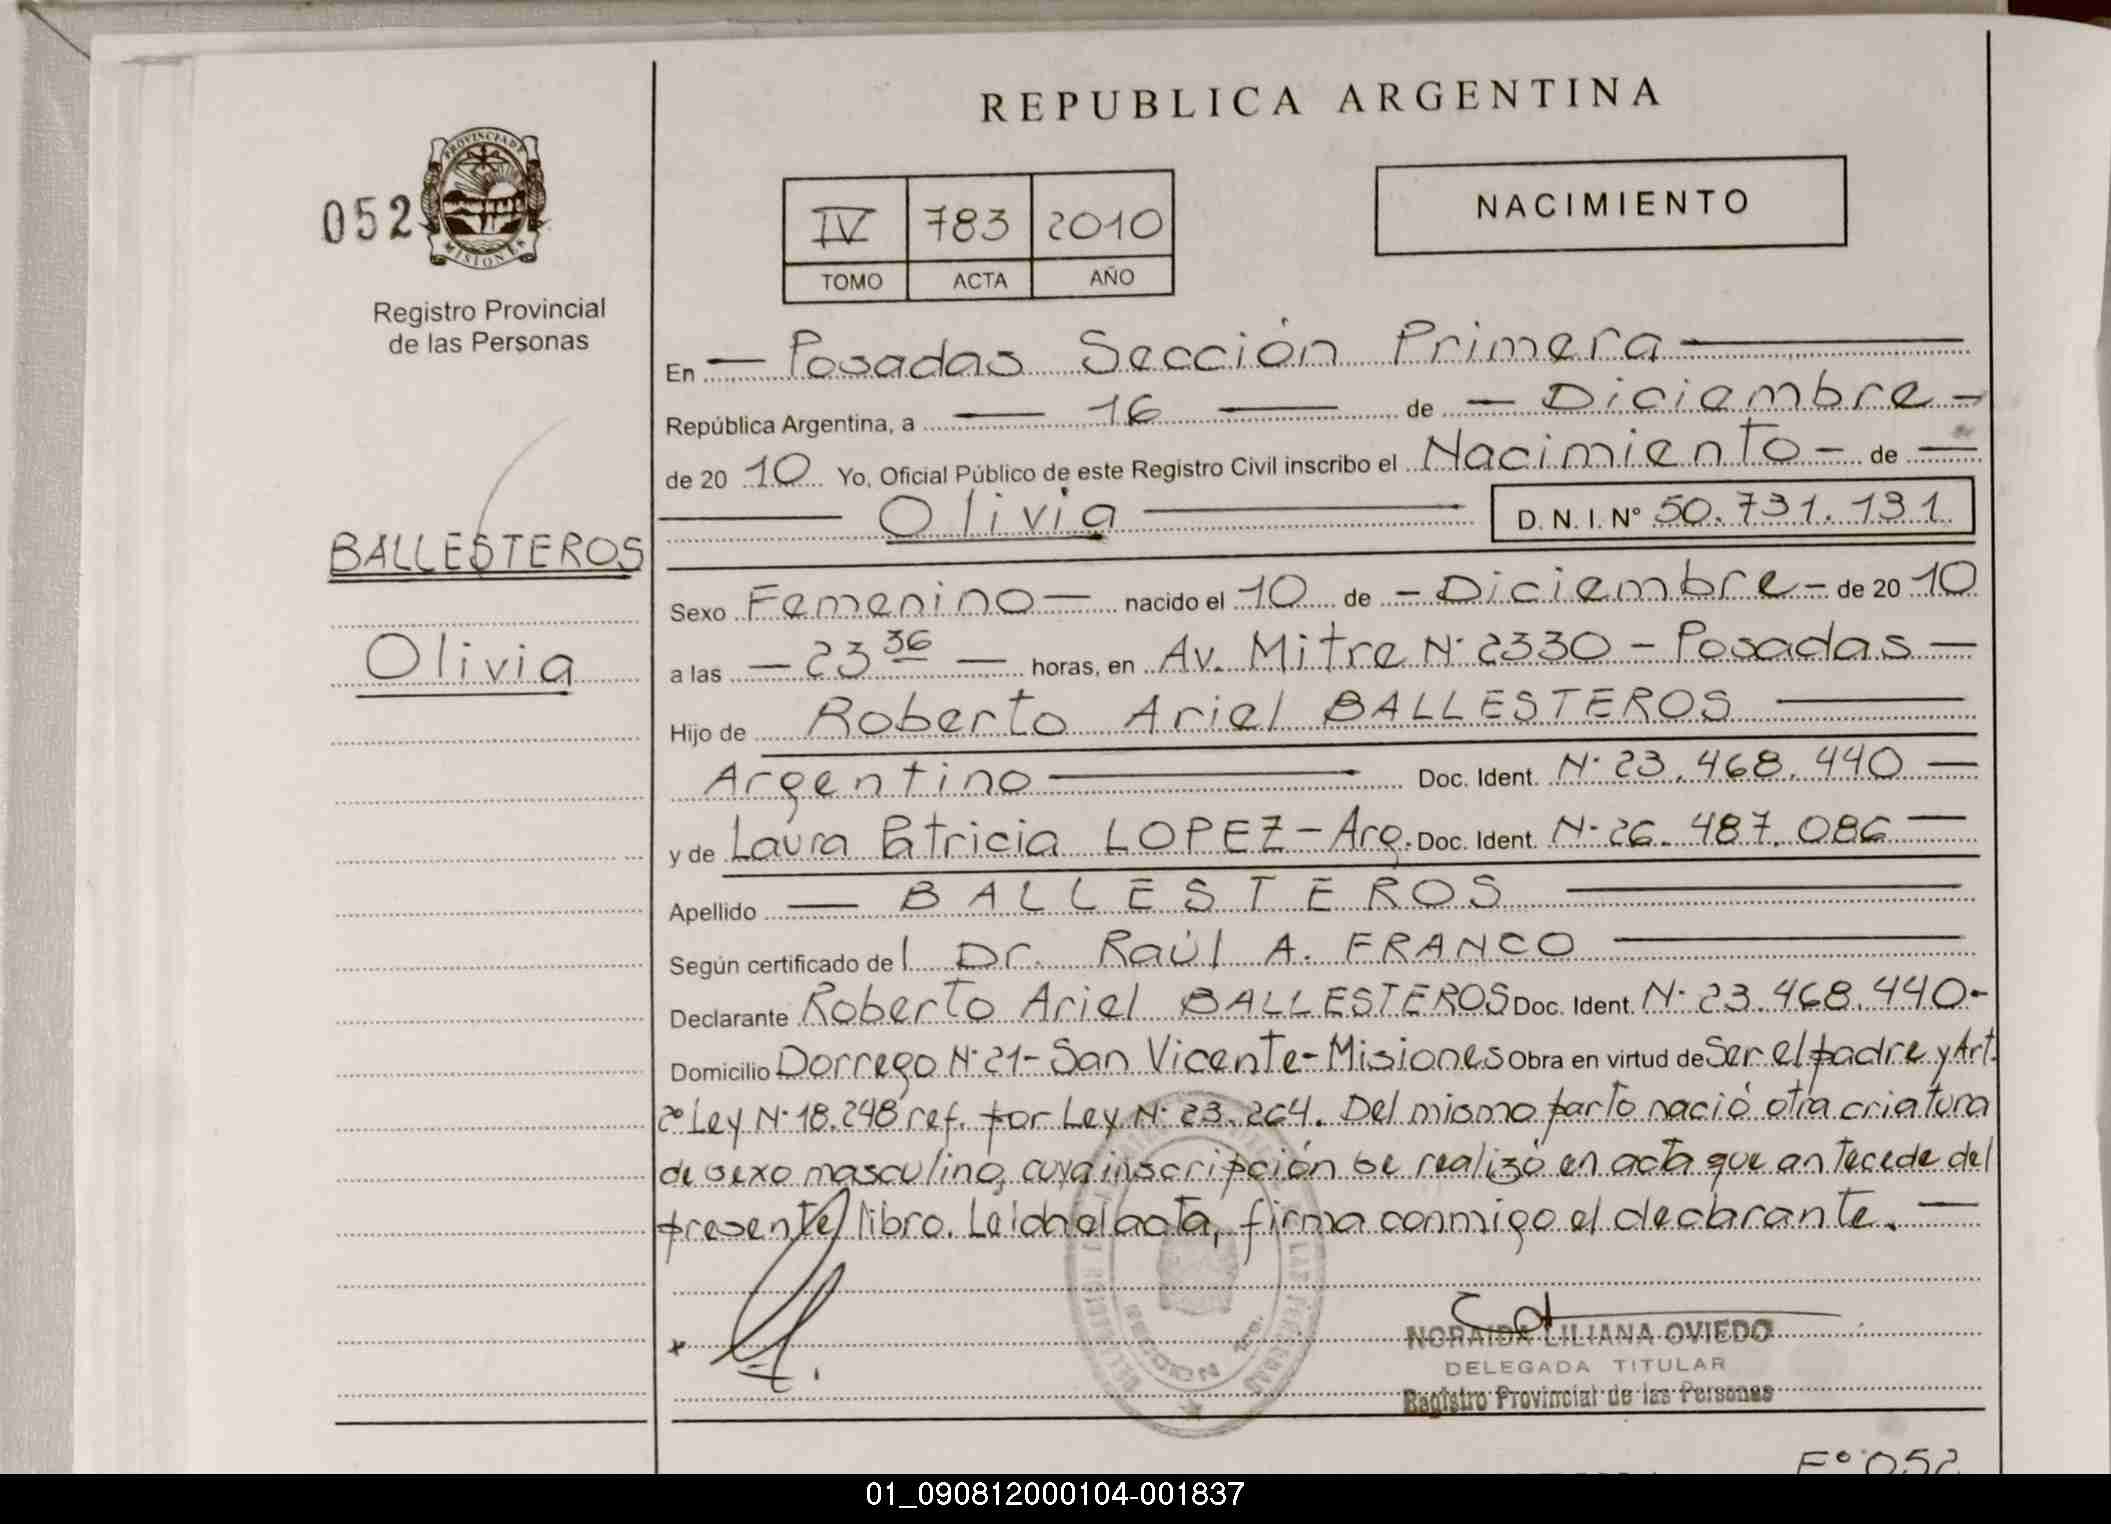 REPUBLICA ARGENTINA
052
PROVINCIA DE
MISIONES
Registro Provincial
de las Personas
IV 783 2010
TOMO ACTA AÑO
NACIMIENTO
BALLESTEROS
Olivia
En — Posadas Sección Primera —
República Argentina, a — 16 — de — Diciembre —
de 20 10 Yo, Oficial Público de este Registro Civil inscribo el Nacimiento — de —
— Olivia — D. N. I. N° 50.731.131
Sexo Femenino — nacido el 10 de — Diciembre — de 20 10
a las — 23 36 — horas, en Av. Mitre N° 2330 — Posadas —
Hijo de Roberto Ariel BALLESTEROS —
Argentino — Doc. Ident. N° 23.468.440 —
y de Laura Patricia LOPEZ — Arg. Doc. Ident. N° 26.487.086 —
Apellido — BALLESTEROS —
Según certificado del Dr. Raúl A. FRANCO —
Declarante Roberto Ariel BALLESTEROS Doc. Ident. N° 23.468.440-
Domicilio Dorrego N° 21 - San Vicente - Misiones Obra en virtud de Ser el padre y Art.
2° Ley N° 18.248 ref. por Ley N° 23.264. Del mismo parto nació otra criatura
de sexo masculino, cuya inscripción se realizó en acta que antecede del
presente libro. Leida el acta, firma conmigo el declarante. —
x
NORAIDA LILIANA OVIEDO
DELEGADA TITULAR
Registro Provincial de las Personas
F° 052
01_090812000104-001837